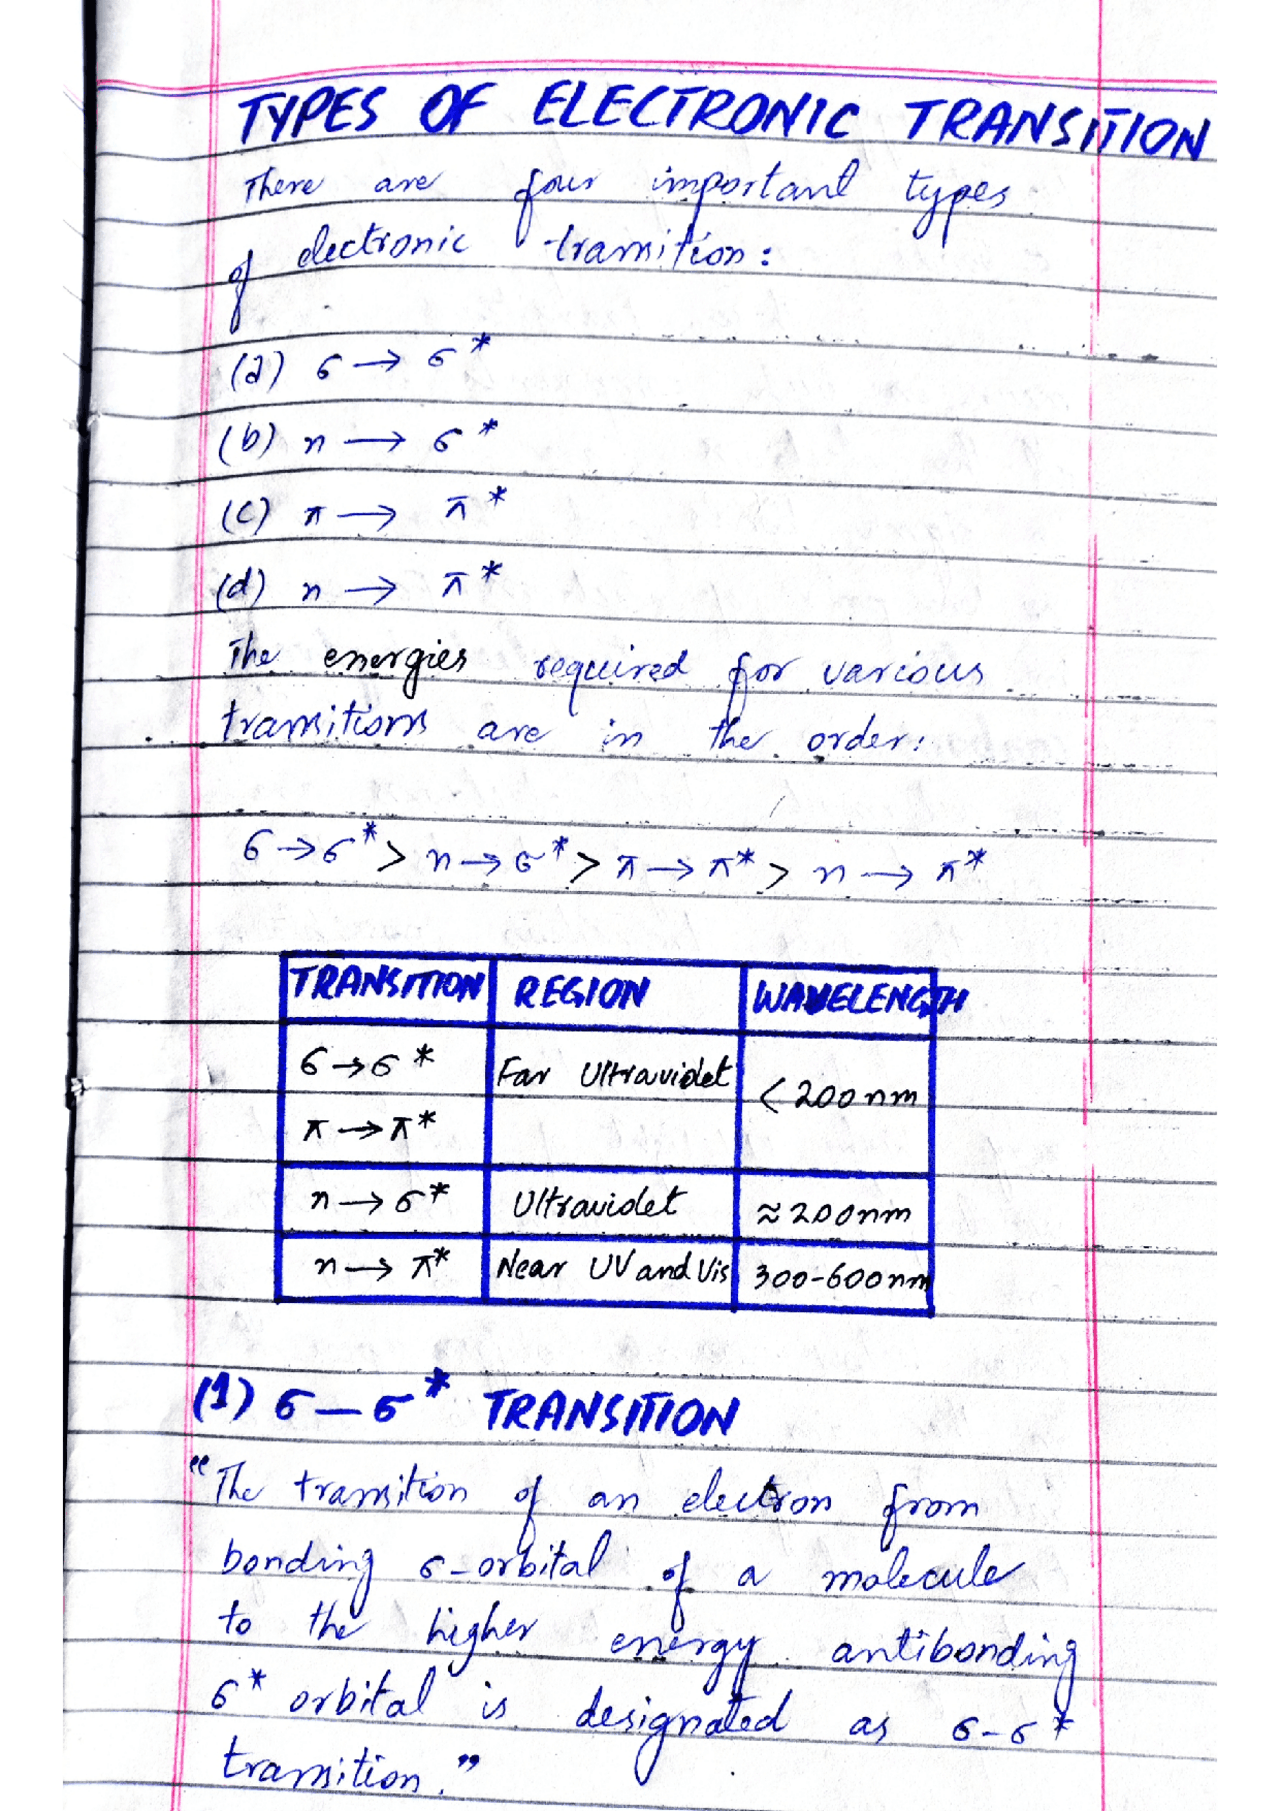 TYPES OF ELECTRONIC TRANSITION
There are four important types
of electronic transition:
(a) σ → σ*
(b) n → σ*
(c) π → π*
(d) n → π*
The energies required for various
transitions are in the order:
σ → σ* > n → σ* > π → π* > n → π*
TRANSITION REGION WAVELENGTH
σ → σ* Far Ultraviolet < 200 nm
π → π*
n → σ* Ultraviolet ≈ 200nm
n → π* Near UV and Vis 300-600nm
(1) σ – σ* TRANSITION
“The transition of an electron from
bonding σ-orbital of a molecule
to the higher energy antibonding
σ* orbital is designated as σ-σ*
transition.”